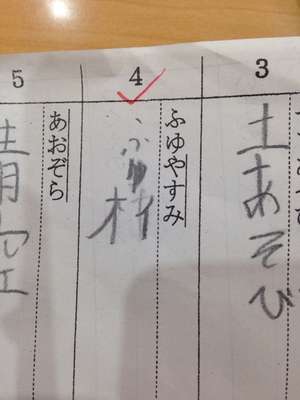 3
土あそび
4
ふゆやすみ
ふゆ
5
あおぞら
青空